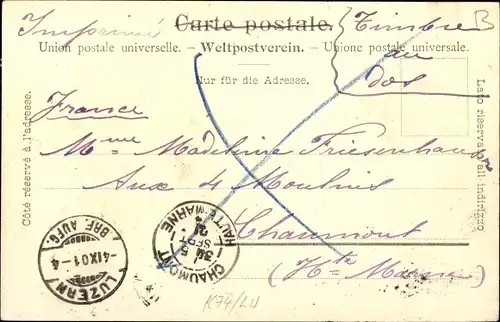 Imprimé Carte postale. Timbre B
Union postale universelle. – Weltpostverein. – Unione postale universale.
au
Nur für die Adresse.
dos
France
Côté réservé à l'adresse.
Lato riservato all indirizzo
Mme Madeleine Friesenhauser
Aux 4 Moulins
Chaumont
(Hte Marne)
CHAUMONT
HAUTE-MARNE
5
SEPT
LUZERN
BRF. AUFG.
-4 IX 01 - 4
K74/LU